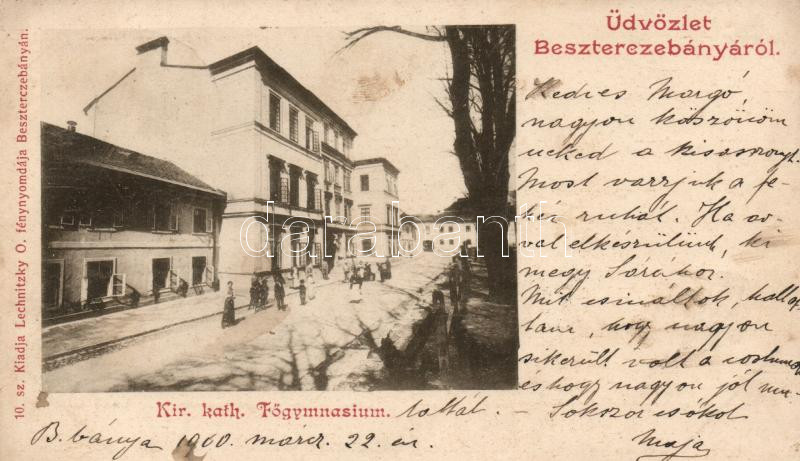 Üdvözlet
Beszterczebányáról.
10. sz. Kiadja Lechnitzky O. fénynyomdája Beszterczebányán.
Kedves Margó,
nagyon köszönöm
neked a kisasszonyt.
Most varrjuk a fe-
hér ruhát. Ha av-
val elkészülünk, ki
megy Sárához.
Mit csináltok, hallot-
tam, hogy nagyon
sikerült volt a
és hogy nagyon jól mu-
lattál. - Sokszor csókol
Maja
Kir. kath. Főgymnasium.
B. bánya 1900. márcz. 22. én
darabanth